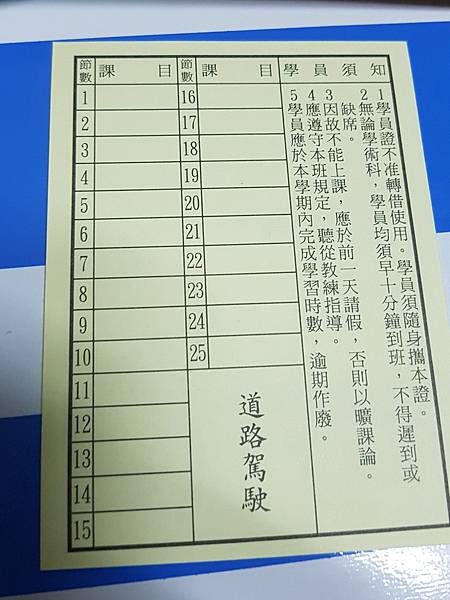 節數 課目 節數 課目 學員須知
1 16
2 17
3 18
4 19
5 20
6 21
7 22
8 23
9 24
10 25
11
12
13
14
15
道路駕駛
1學員證不准轉借使用。學員須隨身攜本證。
2無論學術科，學員均須早十分鐘到班，不得遲到或
缺席。
3因故不能上課，應於前一天請假，否則以曠課論。
4應遵守本班規定，聽從教練指導。
5學員應於本學期內完成學習時數，逾期作廢。